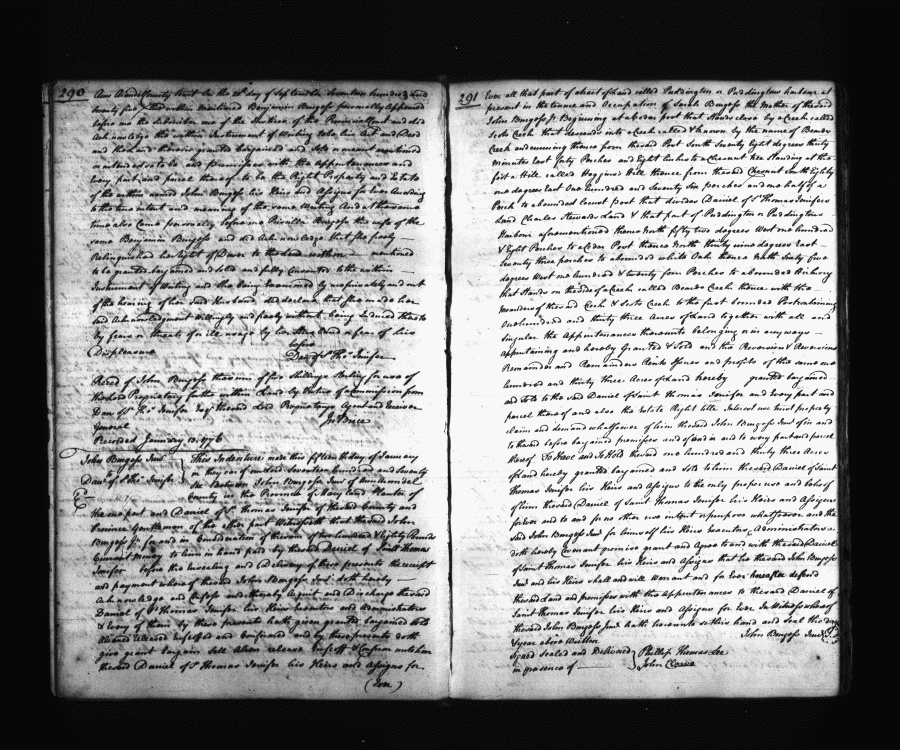 290
Ann Arundel County Court On the 20th day of September Seventeen hundred and
twenty five the within mentioned Benjamin Burgess personally Appeared
before me the subscriber one of the Justices of the Provincial Court and did
Acknowledge the within Instrument of Writing to be his Act and Deed
and the Land therein granted bargained and Sold or meant mentioned
or intended so to be and Premisses with the Appurtenances and
Every part and parcel thereof to be the Right Property and Estate
of the within named John Burgess his Heirs and Assigns for Ever According
to the true intent and meaning of the same Writing And at the same
time also Came personally before me Priscilla Burgess the wife of the
same Benjamin Burgess and did Acknowledge that she freely
Relinquished her Right of Dower to the Land within mentioned
to be granted bargained and sold and fully Consented to the within
Instrument of Writing and she being Examined by me privately and out
of the hearing of her Said Husband, did declare that she made her
said Acknowledgment willingly and freely without being induced thereto
by fears or threats of or ill usage by her Husband or fear of his
Displeasure before
Dan of St Thos Jenifer
Reced of John Burgess the sum of five shillings Sterling for use of
the Lord Proprietary for the within Land by Virtue of Commission from
Dan of St Thos Jenifer Esqr the said Lord Proprietarys Agent and Receiver
General Jno Brice
Recorded January 13, 1776
John Burgess Junr
Danl of St Thos Jenifer
This Indenture made this fifteenth day of January
in the year of our Lord Seventeen hundred and Seventy
six Between John Burgess Junr of Ann Arundel
County in the Province of Maryland Planter of
the one part and Daniel of St Thomas Jenifer of the said County and
Province Gentleman of the other part Witnesseth that the said John
Burgess Jr for and in Consideration of the sum of two hundred & Eighty Pounds
Current money to him in hand paid by the said Daniel of Saint Thomas
Jenifer before the Ensealing and Delivery of these presents the receipt
and payment whereof the said John Burgess Junr doth hereby
Acknowledge and Confess and thereby Acquit and Discharge the said
Daniel of St Thomas Jenifer his Heirs Executors and Administrators
& Every of them by these presents hath given granted bargained sold
Aliened released enfeoffed and Confirmed and by these presents doth
give grant bargain sell Alien release Enfeoff & Confirm unto him
the said Daniel of St Thomas Jenifer his Heirs and Assigns for
(Ever)
291
Ever all that part of a tract of Land called Puddington or Puddingtons harbour at
present in the tenure and Occupation of Sarah Burgess the Mother of the said
John Burgess Jr Beginning at a Cedar post that stands close by a Creek called
Creek that descends into a Creek called & known by the name of Beards
Creek and running thence from the said Post South Seventy Eight degrees thirty
minutes East forty Perches and Eight links to a Chesnut tree Standing at the
foot a Hill called Hoggins Hill thence from the said Chesnut South Eighty
one degrees East One hundred and Seventy Six perches and one half of a
Perch to a bounded locust post that divides Daniel of St Thomas Jenifers
Land Charles Stewards Land & that part of Puddington or Puddingtons
Harbour aforementioned thence North fifty two degrees West one hundred
& Eight Perches to a Cedar Post thence North thirty nine degrees East
Seventy three perches to a bounded white Oak thence North Sixty five
degrees West one hundred & twenty four Perches to a bounded Hickory
that Stands on the side of a Creek called Beards Creek thence with the
meanders of the said Creek & Creek to the first bounded Post containing
One hundred and thirty three Acres of Land together with all and
singular the Appurtenances thereunto belonging or in anyways
appertaining and hereby Granted & Sold and the Reversion & Reversions
Remainder and Remainders Rents Issues and profits of the same one
hundred and thirty three Acres of Land hereby granted bargained
and sold to the said Daniel of Saint Thomas Jenifer and every part and
parcel thereof and also the Estate Right title Interest use trust property
claim and demand whatsoever of him the said John Burgess Junr of in and
to the said before bargained premises and of and in and to every part and parcel
thereof To Have and To Hold the said one hundred and thirty three Acres
of Land hereby granted bargained and Sold to him the said Daniel of Saint
Thomas Jenifer his Heirs and Assigns to the only proper use and behoof
of him the said Daniel of Saint Thomas Jenifer his Heirs and Assigns
forever and to and for no other use intent or purpose whatsoever and the
said John Burgess Junr for himself his Heirs Executors & Administrators
doth hereby Covenant promise grant and Agree to and with the said Daniel
of Saint Thomas Jenifer his Heirs and Assigns that he the said John Burgess
Junr and his Heirs shall and will Warrant and for Ever hereafter defend
the said Land and premises with the Appurtenances to the said Daniel of
Saint Thomas Jenifer his Heirs and Assigns for Ever In Witness whereof
the said John Burgess Junr hath hereunto set his hand and Seal the day
& year above Written John Burgess Junr
Signed Sealed and Delivered
in presence of
Phillip Thomas Lee
John Clarue